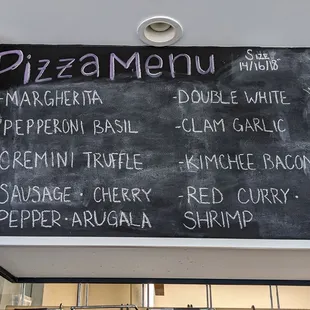 Pizza Menu
Size
14/16/18
-MARGHERITA
PEPPERONI BASIL
CREMINI TRUFFLE
SAUSAGE · CHERRY
PEPPER · ARUGALA
-DOUBLE WHITE
-CLAM GARLIC
-KIMCHEE BACON
-RED CURRY ·
SHRIMP